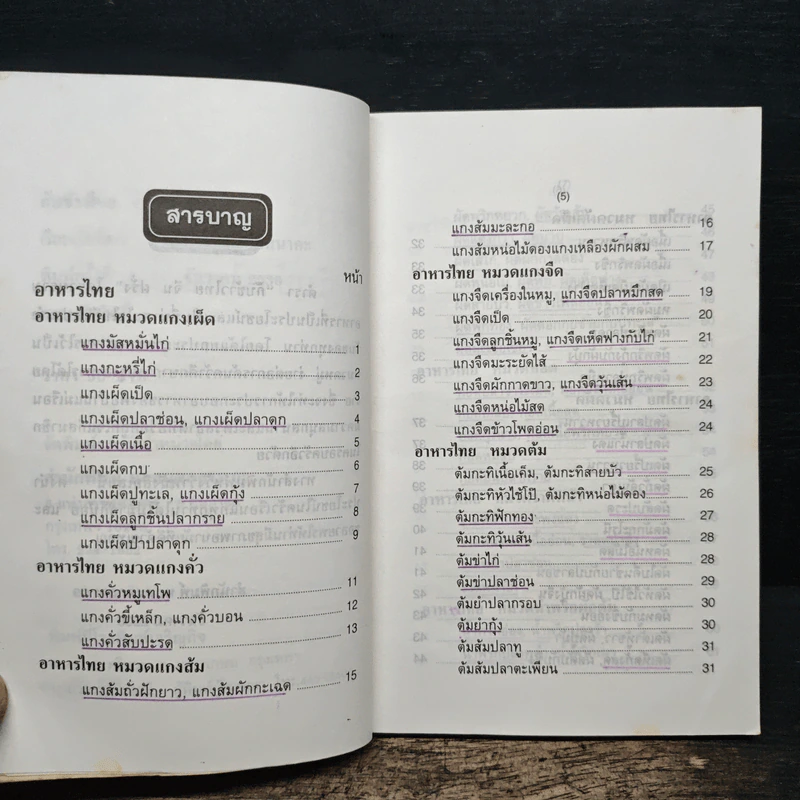 สารบาญ
หน้า
อาหารไทย
อาหารไทย หมวดแกงเผ็ด
แกงมัสหมั่นไก่ 1
แกงกะหรี่ไก่ 2
แกงเผ็ดเป็ด 3
แกงเผ็ดปลาช่อน, แกงเผ็ดปลาดุก 4
แกงเผ็ดเนื้อ 5
แกงเผ็ดกบ 6
แกงเผ็ดปูทะเล, แกงเผ็ดกุ้ง 7
แกงเผ็ดลูกชิ้นปลากราย 8
แกงเผ็ดป่าปลาดุก 9
อาหารไทย หมวดแกงคั่ว
แกงคั่วหมูเทโพ 11
แกงคั่วขี้เหล็ก, แกงคั่วบอน 12
แกงคั่วสับปะรด 13
อาหารไทย หมวดแกงส้ม
แกงส้มถั่วฝักยาว, แกงส้มผักกะเฉด 15
(5)
แกงส้มมะละกอ 16
แกงส้มหน่อไม้ดองแกงเหลืองผักผสม 17
อาหารไทย หมวดแกงจืด
แกงจืดเครื่องในหมู, แกงจืดปลาหมึกสด 19
แกงจืดเป็ด 20
แกงจืดลูกชิ้นหมู, แกงจืดเห็ดฟางกับไก่ 21
แกงจืดมะระยัดไส้ 22
แกงจืดผักกาดขาว, แกงจืดวุ้นเส้น 23
แกงจืดหน่อไม้สด 24
แกงจืดข้าวโพดอ่อน 24
อาหารไทย หมวดต้ม
ต้มกะทิเนื้อเค็ม, ต้มกะทิสายบัว 25
ต้มกะทิหัวไช้โป๊, ต้มกะทิหน่อไม้ดอง 26
ต้มกะทิฟักทอง 27
ต้มกะทิวุ้นเส้น 28
ต้มข่าไก่ 28
ต้มข่าปลาช่อน 29
ต้มยำปลากรอบ 30
ต้มยำกุ้ง 30
ต้มส้มปลาทู 31
ต้มส้มปลาตะเพียน 31